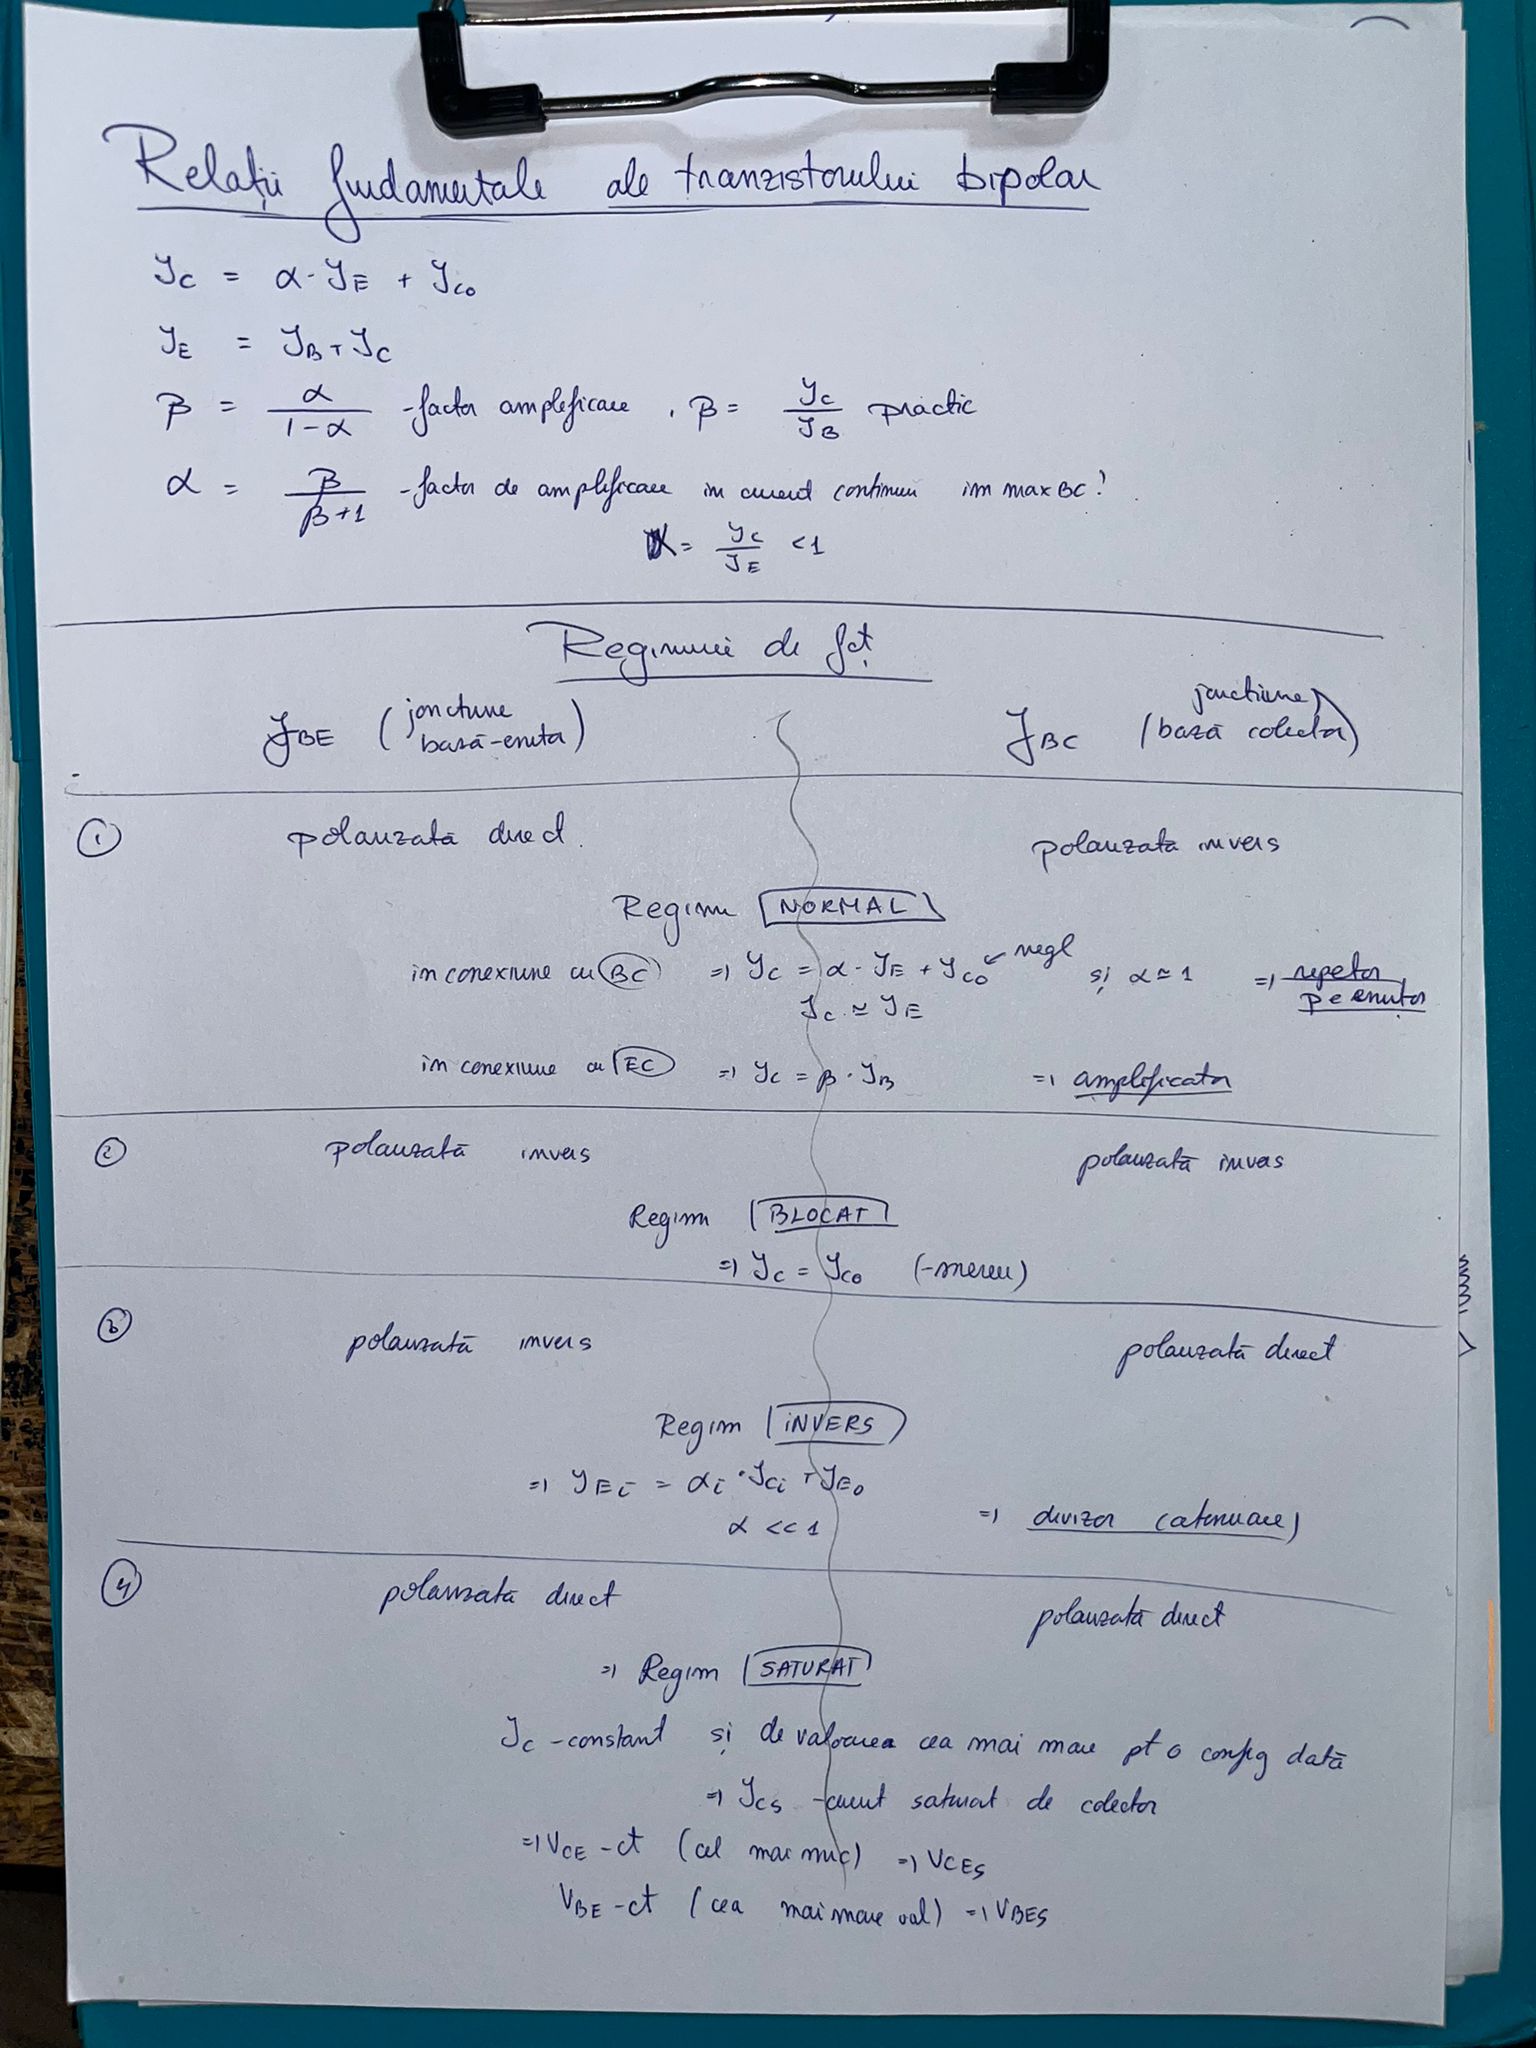 Relații fundamentale ale tranzistorului bipolar
I_C = α · I_E + I_C0
I_E = I_B + I_C
β = α / (1-α) - factor amplificare, β = I_C / I_B practic
α = β / (β+1) - factor de amplificare în curent continuu în max BC!
α = I_C / I_E < 1
Regimuri de fcț
J_BE (joncțiune bază-emitor)
J_BC (joncțiune bază colector)
① polarizată direct. polarizată invers
Regim NORMAL
în conexiune cu BC => I_C = α · I_E + I_C0 ↙ negl și α ≃ 1 => repetor pe emitor
I_C ≃ I_E
în conexiune cu EC => I_C = β · I_B => amplificator
② polarizată invers polarizată invers
Regim BLOCAT
=> I_C = I_C0 (-mereu)
③ polarizată invers polarizată direct
Regim INVERS
=> I_Ei = α_i · I_Ci + I_E0
α << 1 => divizor (atenuare)
④ polarizată direct polarizată direct
=> Regim SATURAT
I_C - constant și de valoarea cea mai mare pt o config dată
=> I_CS - curent saturat de colector
=> V_CE - ct (cel mai mic) => V_CES
V_BE - ct (cea mai mare val) => V_BES